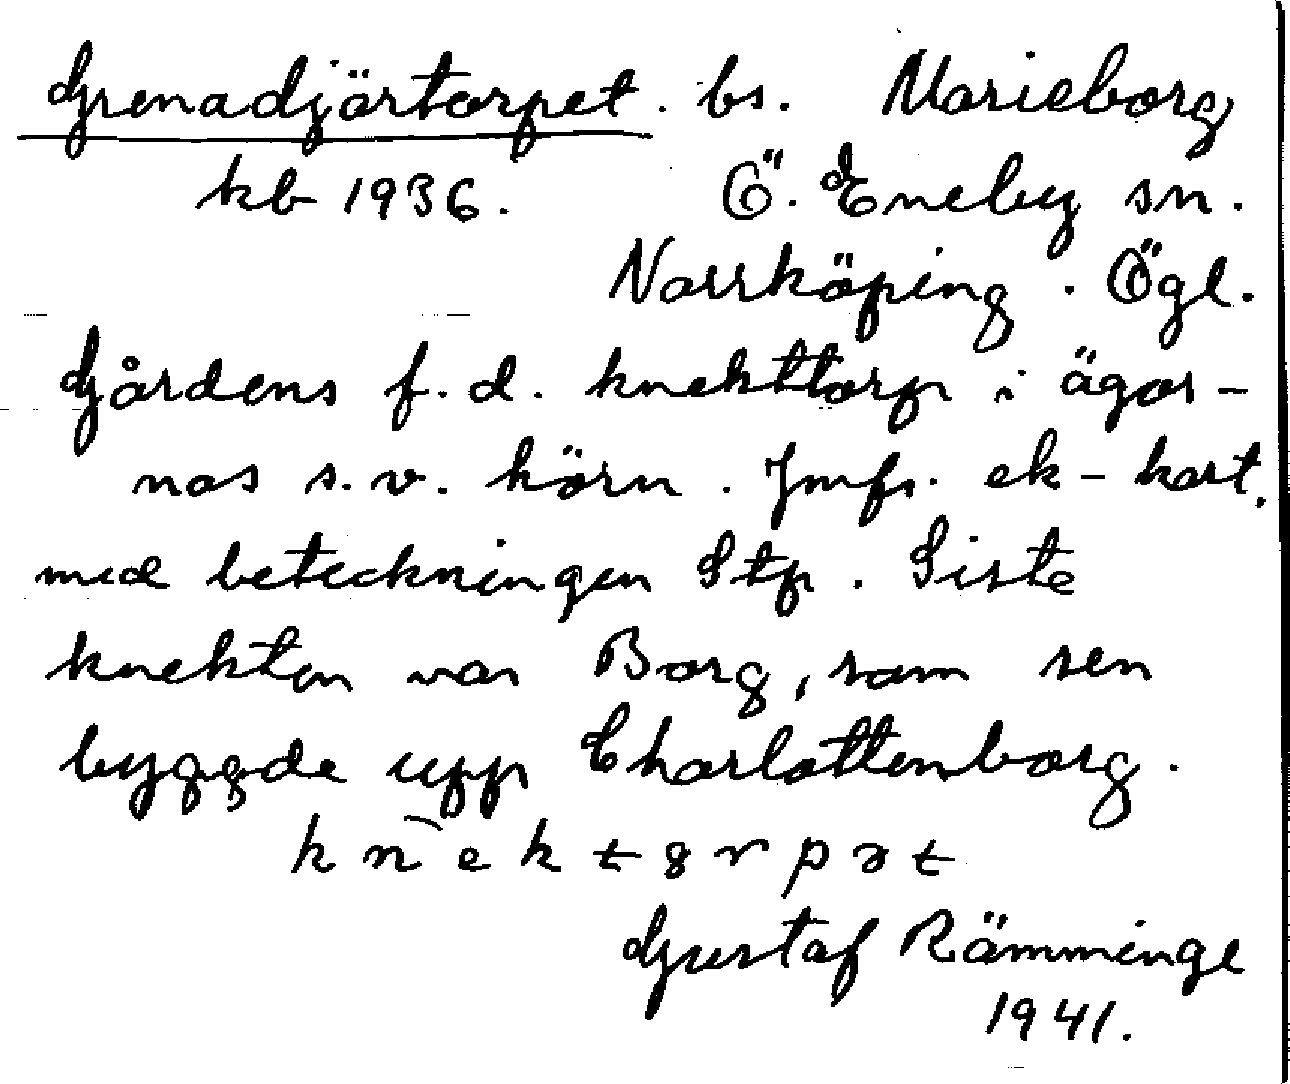 Grenadjärtorpet. bs. Marieborg
kb 1936. Ö. Eneby sn.
Norrköping. Ögl.
Gårdens f.d. knekttorp i ägor-
nas s.v. hörn. Jmfr. ek-kart.
med beteckningen Stp. Siste
knekten var Borg, som sen
byggde upp Charlottenborg.
knektorpət
Gustaf Rämminge
1941.